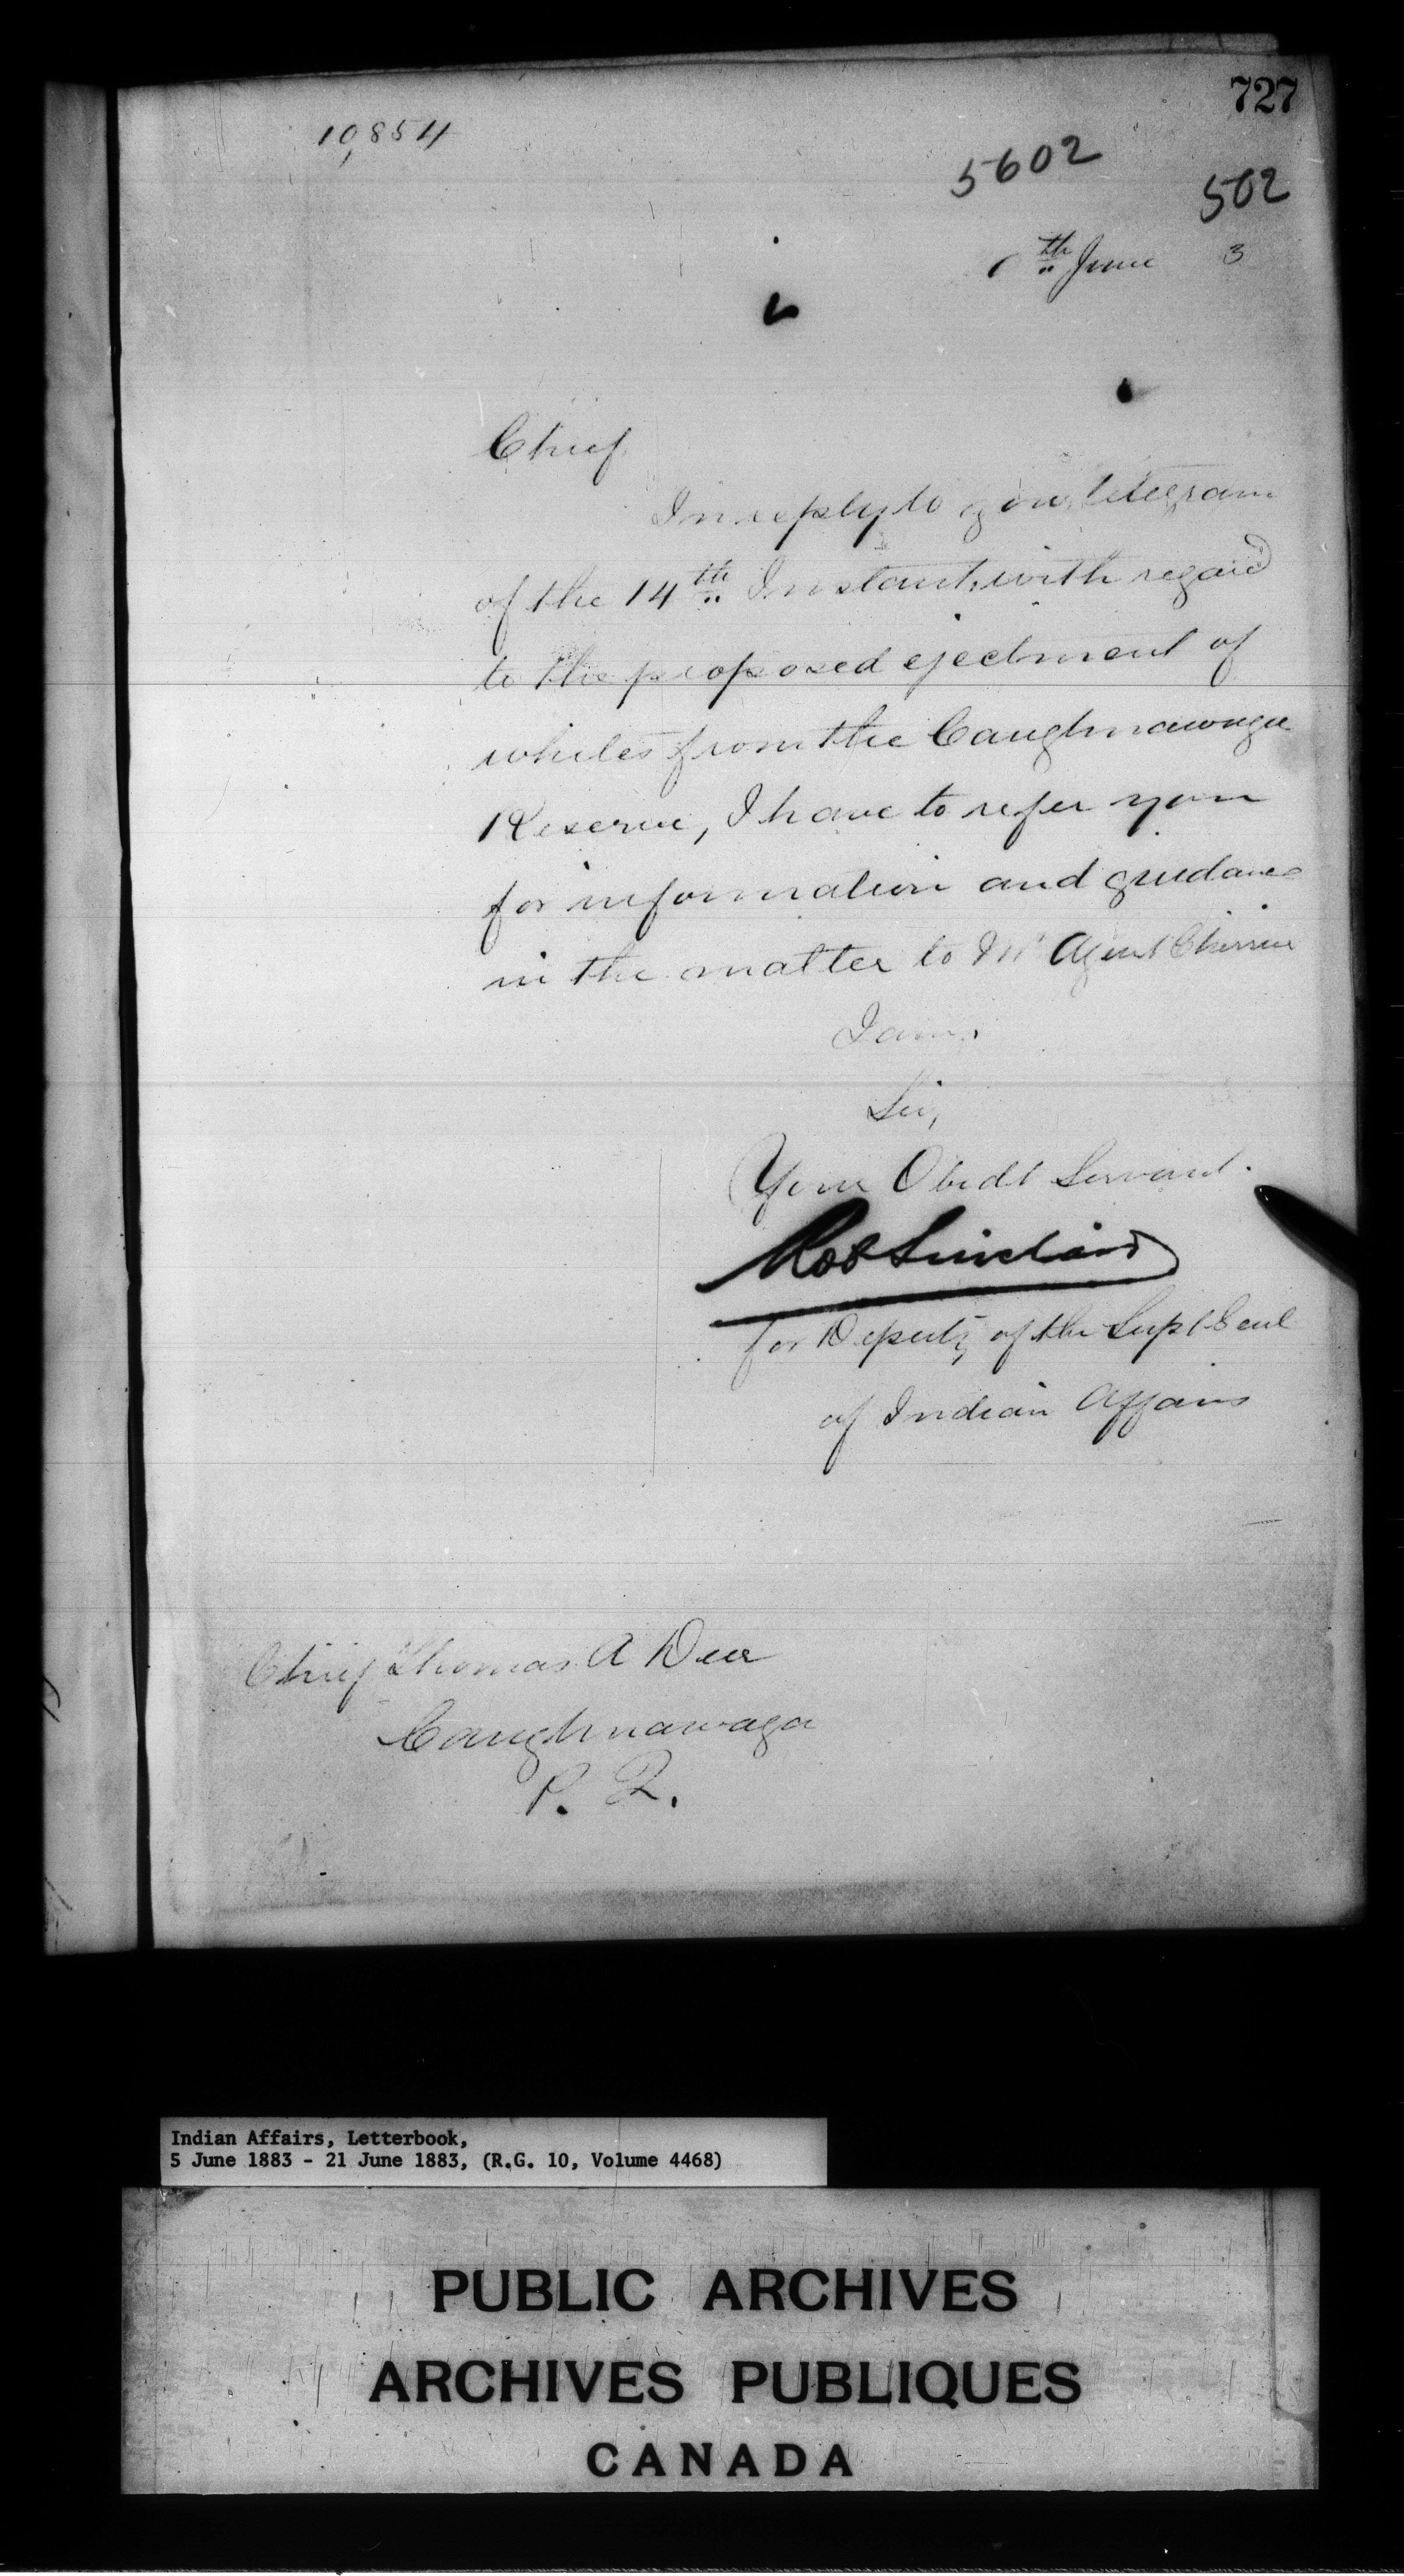 727
10,854
5602
502
th June 3
Chief
In reply to your telegram
of the 14th Instant, with regard
to the proposed ejectment of
whites from the Caughnawaga
Reserve, I have to refer you
for information and guidance
in the matter to Mr Agent Cherrier
I am,
Sir,
Your Obedt Servant.
Rob Sinclair
for Deputy of the Supt Genl
of Indian Affairs
Chief Thomas A Deer
Caughnawaga
P. Q.
Indian Affairs, Letterbook,
5 June 1883 - 21 June 1883, (R.G. 10, Volume 4468)
PUBLIC ARCHIVES
ARCHIVES PUBLIQUES
CANADA